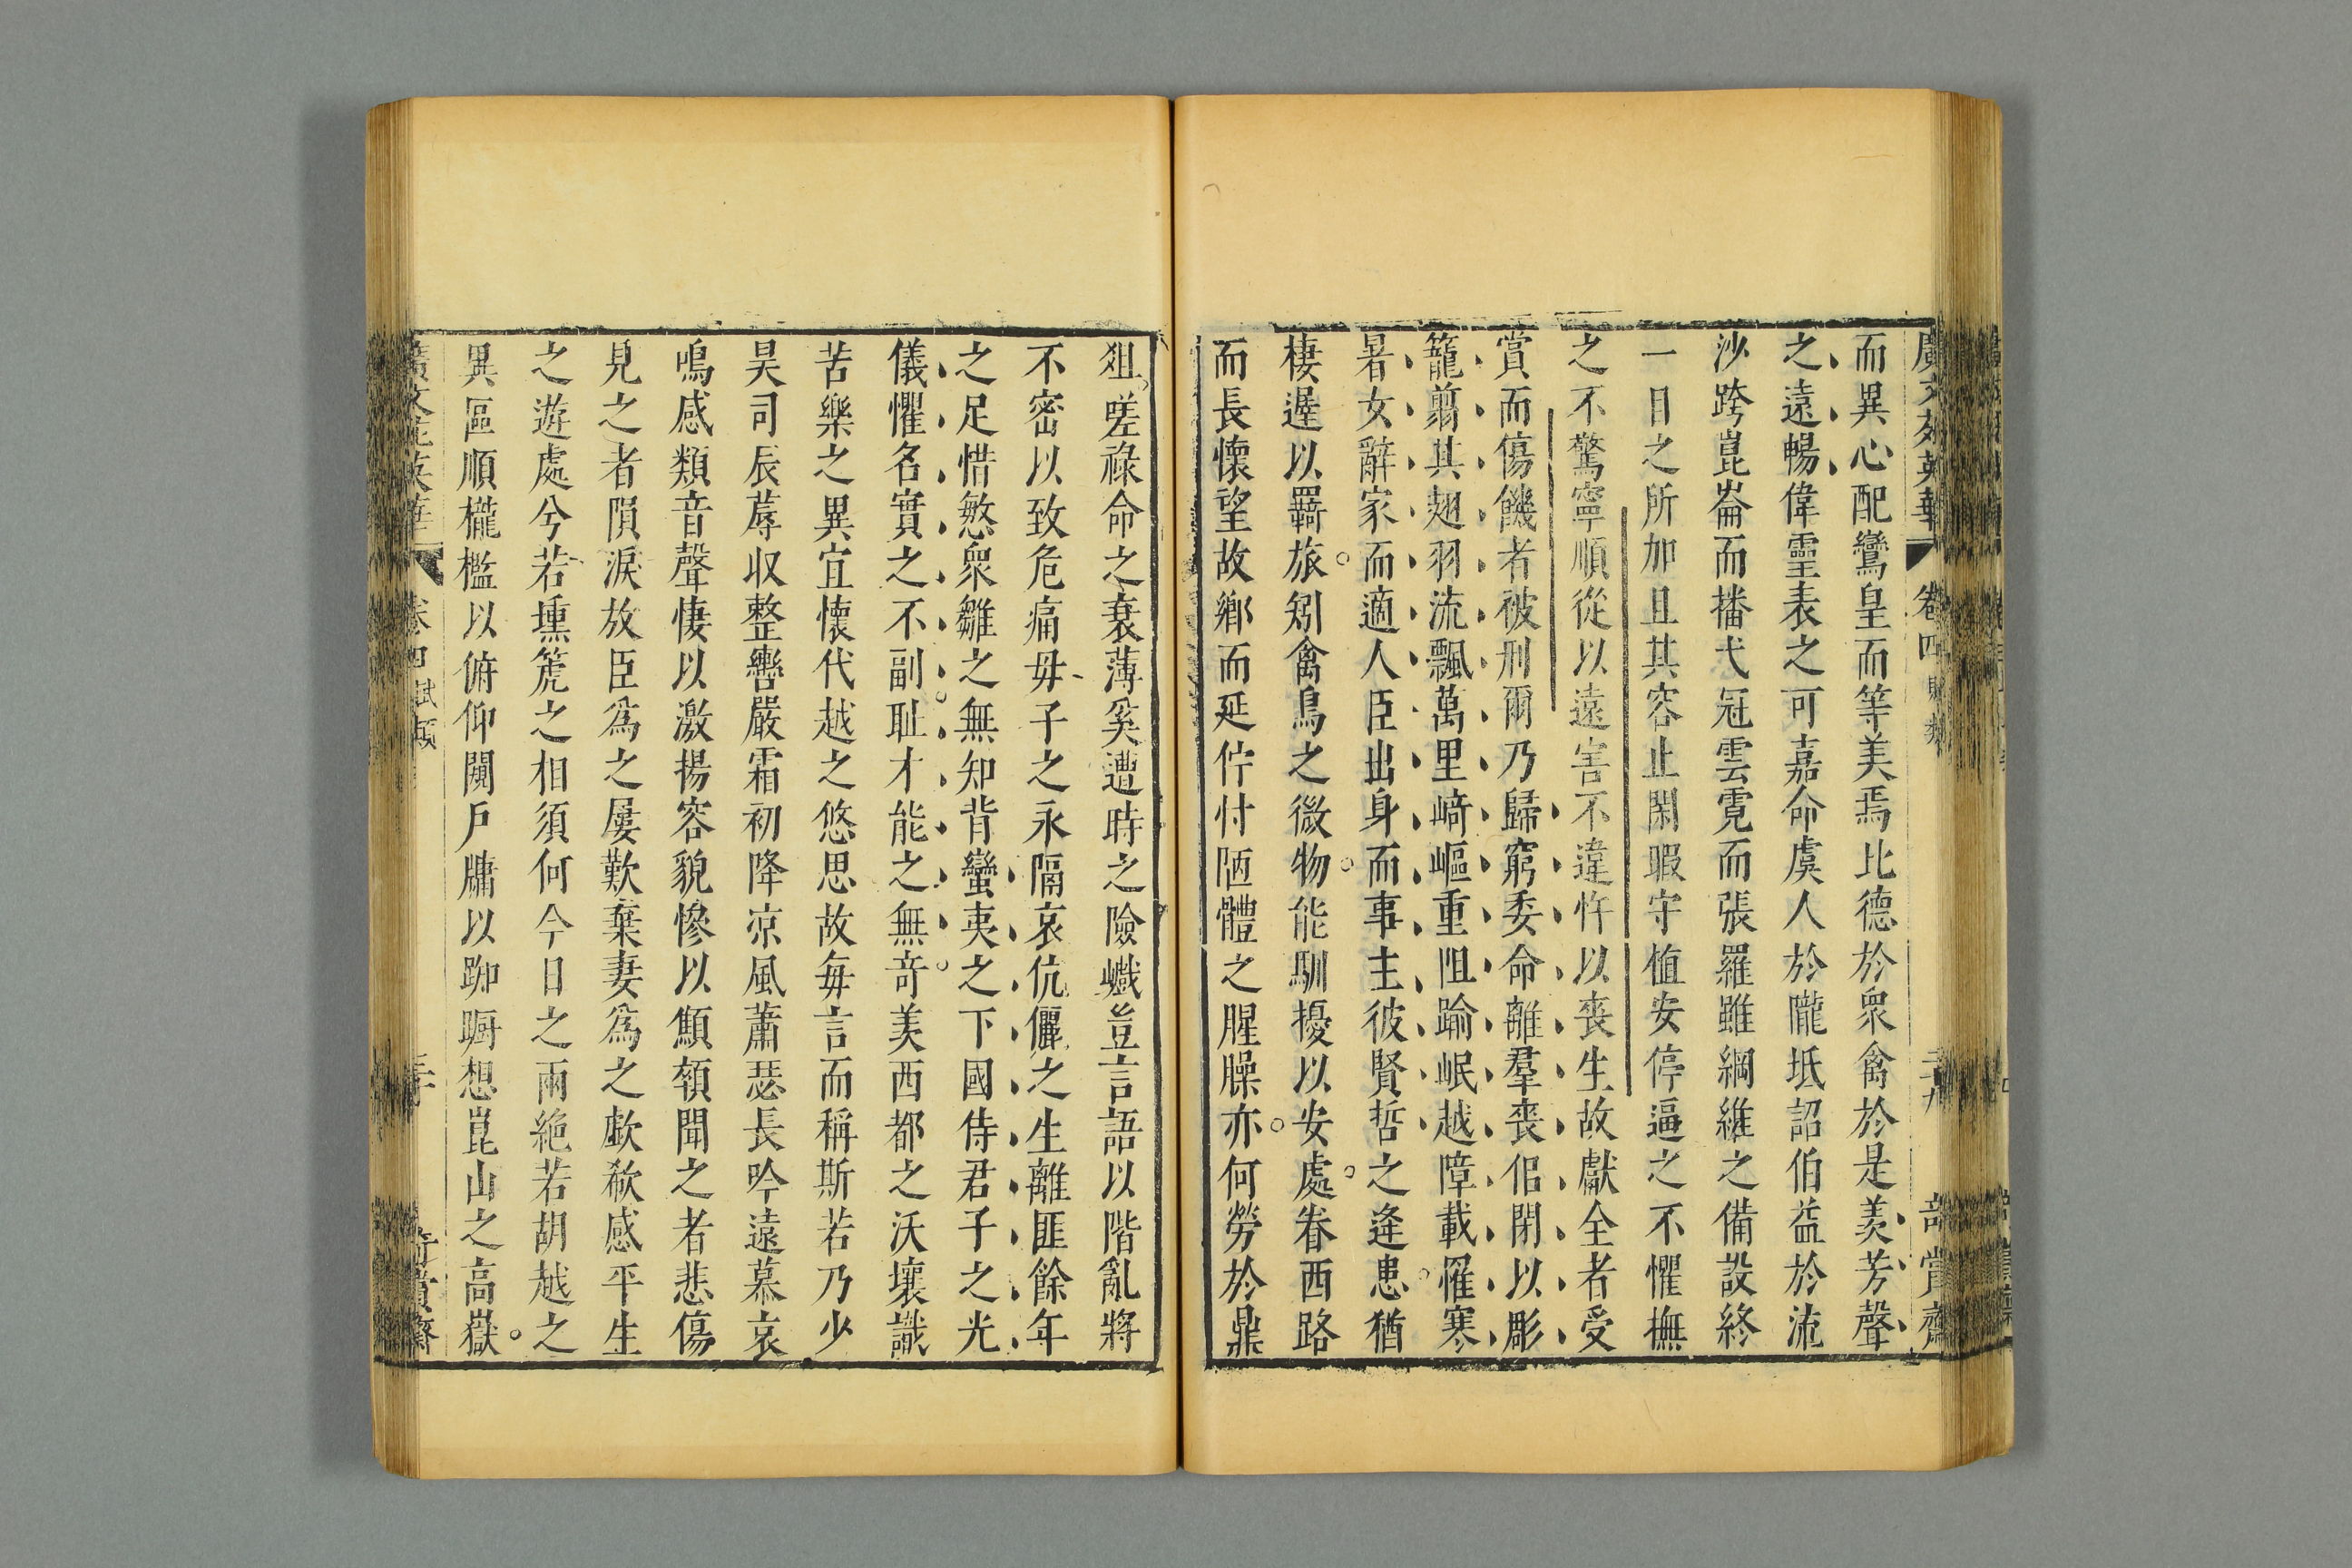 廣文苑英華 卷四 賦類 二十九 奇賞齋
而異心配鸞皇而等美焉比德於衆禽於是羨芳聲
之遠暢偉靈表之可嘉命虞人於隴坻詔伯益於流
沙跨崑崙而播弋冠雲霓而張羅雖綱維之備設終
一日之所加且其容止閑暇守植安停逼之不懼撫
之不驚寧順從以遠害不違忤以喪生故獻全者受
賞而傷饑者被刑爾乃歸窮委命離羣喪侣閉以彫
籠翦其翅羽流飄萬里崎嶇重阻踰岷越障載罹寒
暑女辭家而適人臣出身而事主彼賢哲之逢患猶
棲遲以羇旅矧禽鳥之微物能馴擾以安處眷西路
而長懷望故鄉而延佇忖陋體之腥臊亦何勞於鼎
俎嗟祿命之衰薄奚遭時之險巇豈言語以階亂將
不密以致危痛毋子之永隔哀伉儷之生離匪餘年
之足惜慜衆雛之無知背蠻夷之下國侍君子之光
儀懼名實之不副耻才能之無奇羨西都之沃壤識
苦樂之異宜懷代越之悠思故毎言而稱斯若乃少
昊司辰蓐收整轡嚴霜初降凉風蕭瑟長吟遠慕哀
鳴感類音聲悽以激揚容貌慘以顦顇聞之者悲傷
見之者隕淚放臣爲之屢歎棄妻爲之歔欷感平生
之遊處兮若壎篪之相須何今日之兩絶若胡越之
異區順櫳檻以俯仰闚戸牖以踟躕想崑山之高嶽
廣文苑英華 卷四 賦類 三十 奇賞齋